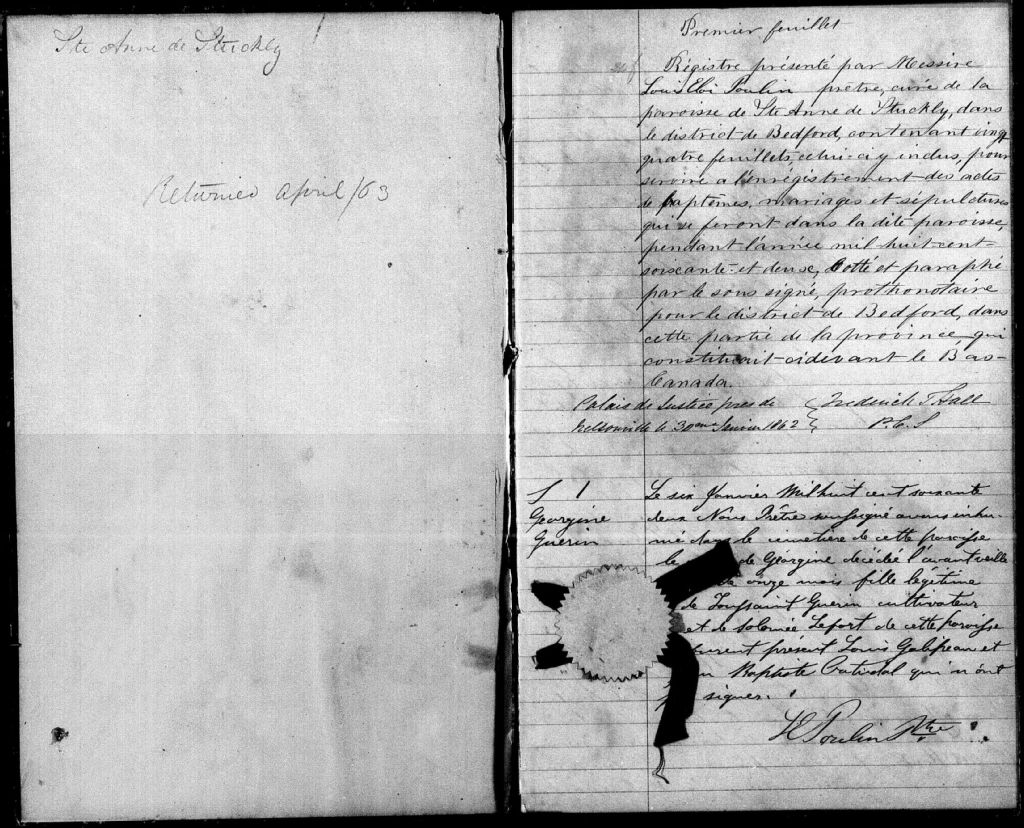 Ste Anne de Stuckly
Returned april/63
Premier feuillet
Régistre présenté par Messire
Louis Eloi Poulin prêtre, curé de la
paroisse de Ste Anne de Stuckly, dans
le district de Bedford, contenant vingt
quatre feuillets, celui-ci y inclus, pour
servire a l'enrégistrement des actes
de baptêmes, mariages et sépultures
qui se feront dans la dite paroisse,
pendant l'année mil huit cent-
soixante-et deuse, Cotté et paraphé
par le sous signé, prothonotaire
pour le district de Bedford, dans
cette partie de la province qui
constituait-cidevant le Bas-
Canada.
Palais de Justice pres de
Nelsonville le 30me Janvier 1862
Frederick T. Hall
P. C. S
S 1
Georgine
Guerin
Le six Janvier Mil huit cent soixante
deux Nous Prêtre soussigné avons inhu-
mé dans le cimetière de cette paroisse
le de Géorgine décédée l'avant veille
onze mois fille légitime
de Toussaint Guerin cultivateur
et de Solomée Lefort de cette paroisse
furent présent Louis et
Baptiste qui n'ont
signer.
L E Poulin Ptre